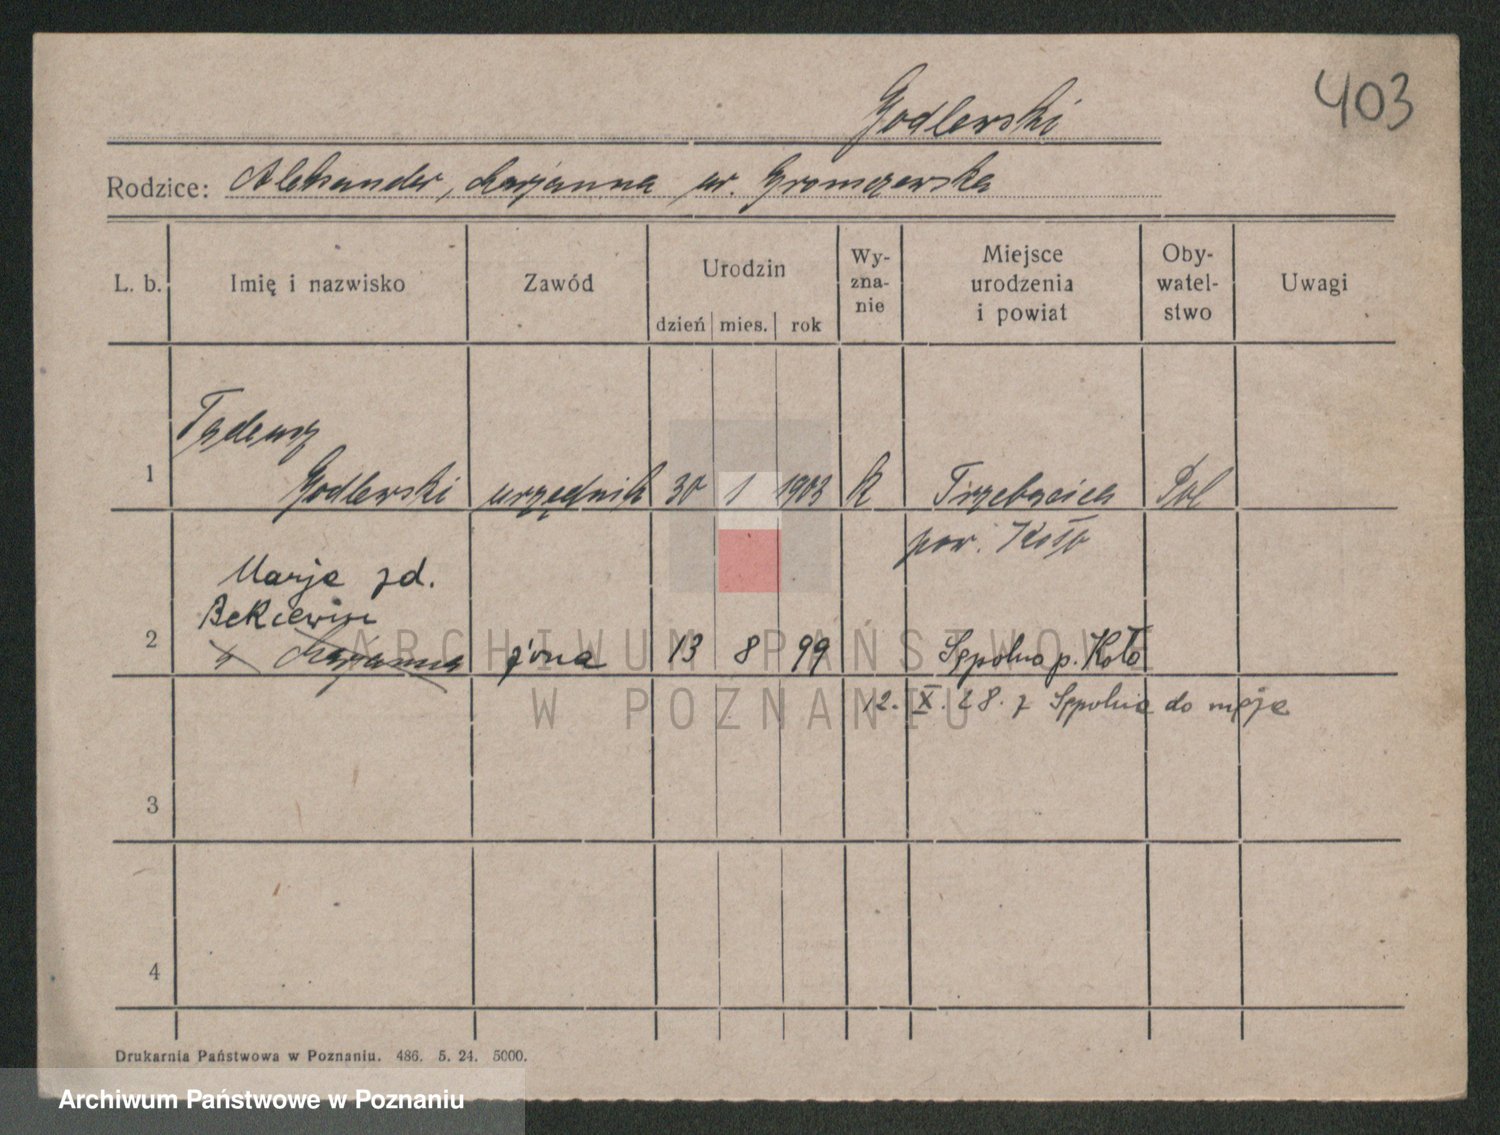 403
Godlewski
Rodzice: Aleksander, Marjanna ur. Gromczewska
L. b. Imię i nazwisko Zawód Urodzin dzień mies. rok Wy-zna-nie Miejsce urodzenia i powiat Oby-watel-stwo Uwagi
Tadeusz
1 Godlewski urzędnik 30 1 1903 k Pol
pow. Koło
Marja zd.
2 żona 13 8 99 Sępolno p. Koło
Marjanna
12. X. 28. z Sępolna do męża
3
4
Drukarnia Państwowa w Poznaniu. 486. 5. 24. 5000.
ARCHIWUM PAŃSTWOWE
W POZNANIU
Archiwum Państwowe w Poznaniu